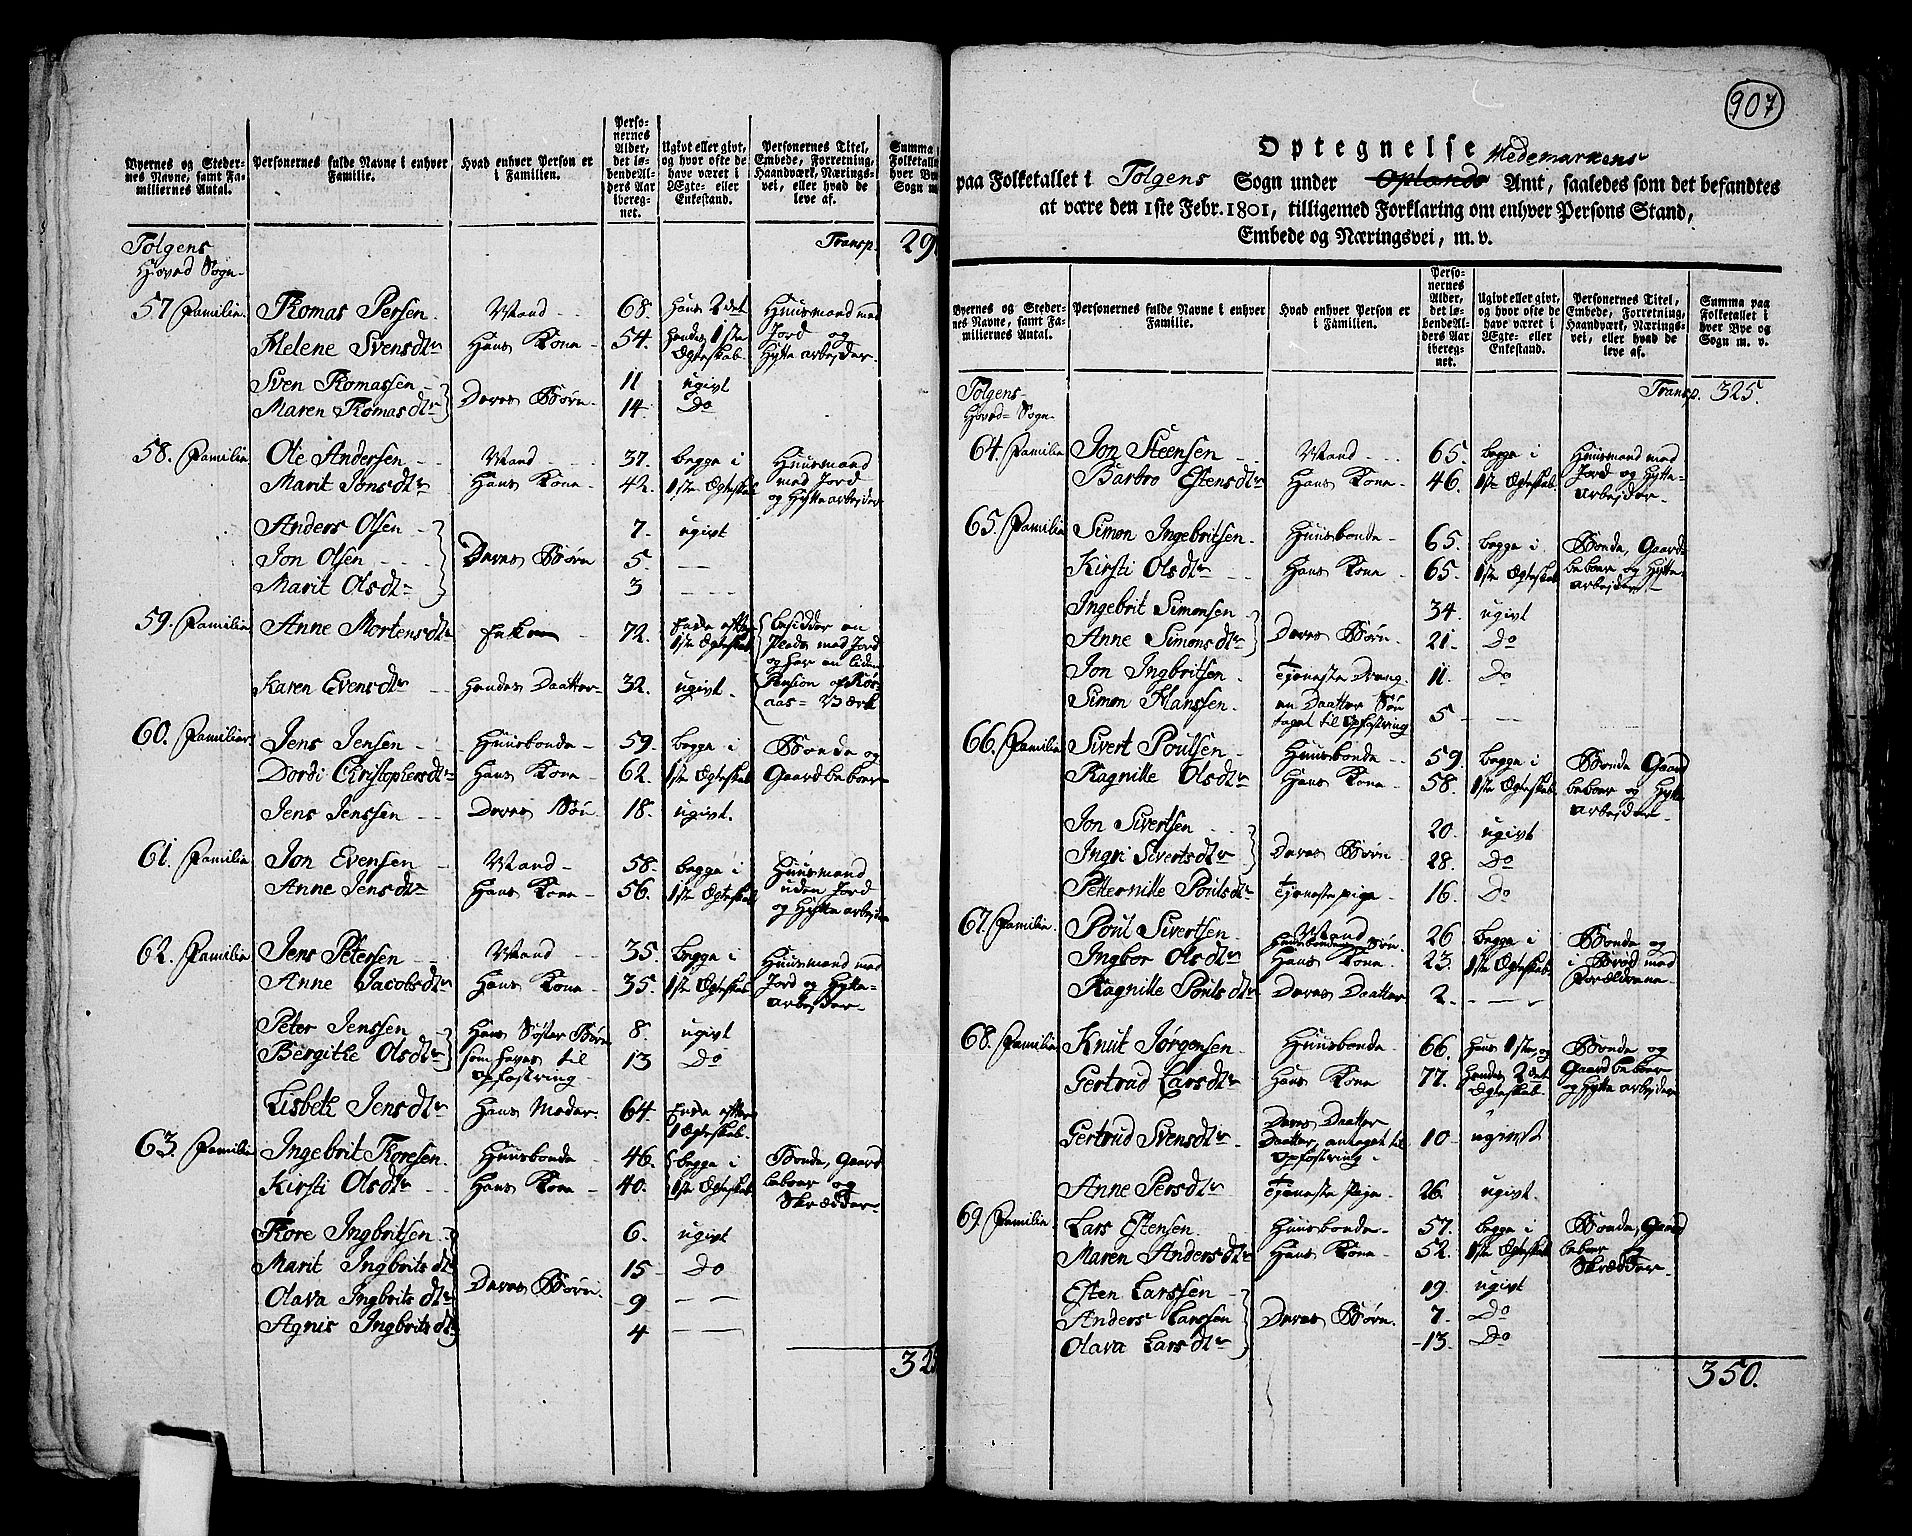 Byernes og Steder-
nes Navne, samt Fa-
miliernes Antal.
Personernes fulde Navne i enhver
Familie.
Hvad enhver Person er
i Familien.
Perso-
nernes
Alder,
det lø-
bende Al-
ders Aar
ibereg-
net.
Ugivt eller givt,
og hvor ofte de
have været i
Ægte- eller
Enkestand.
Personernes Titel,
Embede, Forretning,
Haandværk, Nærings-
vei, eller hvad de
leve af.
Summa
Folketallet
hver By
Sogn m.
Tolgens
Hoved Sogn-
Transp. 29
57 Familie. Thomas Persen. Mand 68. Hans 2det Huusmand med
Helene Svensdtr Hans Kone 54. Hendes 1ste Jord og
Ægteskab. Hytte arbejder.
Sven Thomassen 11 ugivt
Deres Børn.
Maren Thomasdtr 14. Do
58. Familie Ole Andersen Mand 37. begge i Huusmand
Marit Jonsdtr Hans Kone 42. 1ste Ægteskab med Jord
og Hytte arbejder
Anders Olsen 7. ugivt
Jon Olsen Deres Børn 5. — —
Marit Olsdtr 3 — — —
59. Familie Anne Mortensdtr Enke 72. Enke efter besidder en
1ste Ægteskab Plads med Jord
og har en liden
Karen Evensdtr Hendes Daatter 32. ugivt. Pension af Rør-
aas= Værk
60. Familie Jens Jensen Huusbonde 59. begge i Bonde og
Dordi Christophersdtr Hans Kone 62. 1ste Ægteskab Gaardbeboer
Jens Jenssen Deres Søn 18. ugivt.
61. Familie Jon Evensen Mand 58. begge i Huusmand
Anne Jensdtr Hans Kone 56. 1ste Ægteskab uden Jord
og Hytte arbejder
62. Familie Jens Petersen Mand 35. begge i Huusmand med
Anne Jacobsdtr Hans Kone 35. 1ste Ægteskab Jord og Hytte-
arbejder
Peter Jenssen Hans Søster Børn 8. ugivt
Bergithe Olsdtr som haves til 13 Do
opfostring
Lisbeth Jensdtr Hans Moder. 64. Enke efter
1 Ægteskab.
63. Familie Ingebrit Thoresen. Huusbonde 46. begge i Bonde, Gaard
Kirsti Olsdtr Hans Kone 40. 1ste Ægteskab beboer og
Skrædder
Thore Ingbritsen 6. ugivt
Marit Ingbritsdtr 15 Do
Deres Børn.
Olava Ingbritsdtr 9 — —
Agnis Ingbritsdtr 4 — —
32
907
Optegnelse
Hedemarkens
paa Folketallet i Tolgens Sogn under Oplands Amt, saaledes som det befandtes
at være den 1ste Febr. 1801, tilligemed Forklaring om enhver Persons Stand,
Embede og Næringsvei, m. v.
Byernes og Steder-
nes Navne, samt Fa-
miliernes Antal.
Personernes fulde Navne i enhver
Familie.
Hvad enhver Person er
i Familien.
Perso-
nernes
Alder,
det lø-
bende Al-
ders Aar
ibereg-
net.
Ugivt eller givt,
og hvor ofte de
have været i
Ægte- eller
Enkestand.
Personernes Titel,
Embede, Forretning,
Haandværk, Nærings-
vei, eller hvad de
leve af.
Summa paa
Folketallet i
hver Bye og
Sogn m. v.
Tolgens
Hoved= Sogn.
Transp. 325.
64. Familie Jon Steensen Mand 65. begge i Huusmand med
Barbro Estensdtr Hans Kone 46. 1ste Ægteskab. Jord og Hytte-
arbejder
65. Familie Simon Ingebritsen. Huusbonde 65. begge i Bonde, Gaard-
Kirsti Olsdtr Hans Kone 65. 1ste Ægteskab beboer og Hytte-
arbejder
Ingebrit Simonsen 34. ugivt
Deres Børn
Anne Simonsdtr 21. Do
Jon Ingbritsen. Tjeneste Dreng. 11. Do
Simon Hanssen. en Daatter Søn 5 — —
taget til opfostring
66. Familie Sivert Poulsen Huusbonde 59. begge i Bonde Gaard
Ragnille Olsdtr Hans Kone 58. 1ste Ægteskab beboer og Hytte
arbejder
Jon Sivertsen 20. ugivt
Deres Børn
Ingri Sivertsdtr 28. Do
Petternille Poulsdtr Tjenestepige 16. Do
67. Familie. Poul Sivertsen. Mand 26 begge i Bonde og
Huusbondens Søn.
Ingbor Olsdtr Hans Kone 23. 1ste Ægteskab. i Brød med
Ragnille Poulsdtr Deres Daatter 2. — — Forældrene
68. Familie Knut Jørgensen. Huusbonde 66. Hans 1ste, og Bonde og
Gertrud Larsdtr Hans Kone 77. Hendes 2det Gaardbeboer
Ægteskab. og Hytte arbejder
Deres Daatter
Gertrud Svensdtr Daatter, antaget til 10 ugivt
opfostring
Anne Persdtr Tjeneste Pige 26. ugivt.
69. Familie. Lars Estensen Huusbonde 57. begge i Bonde, Gaard
Maren Andersdtr Hans Kone 52. 1ste Ægteskab beboer og
Skrædder
Esten Larssen 19. ugivt
Anders Larssen Deres Børn. 7. Do
Olava Larsdtr 13. Do
350.